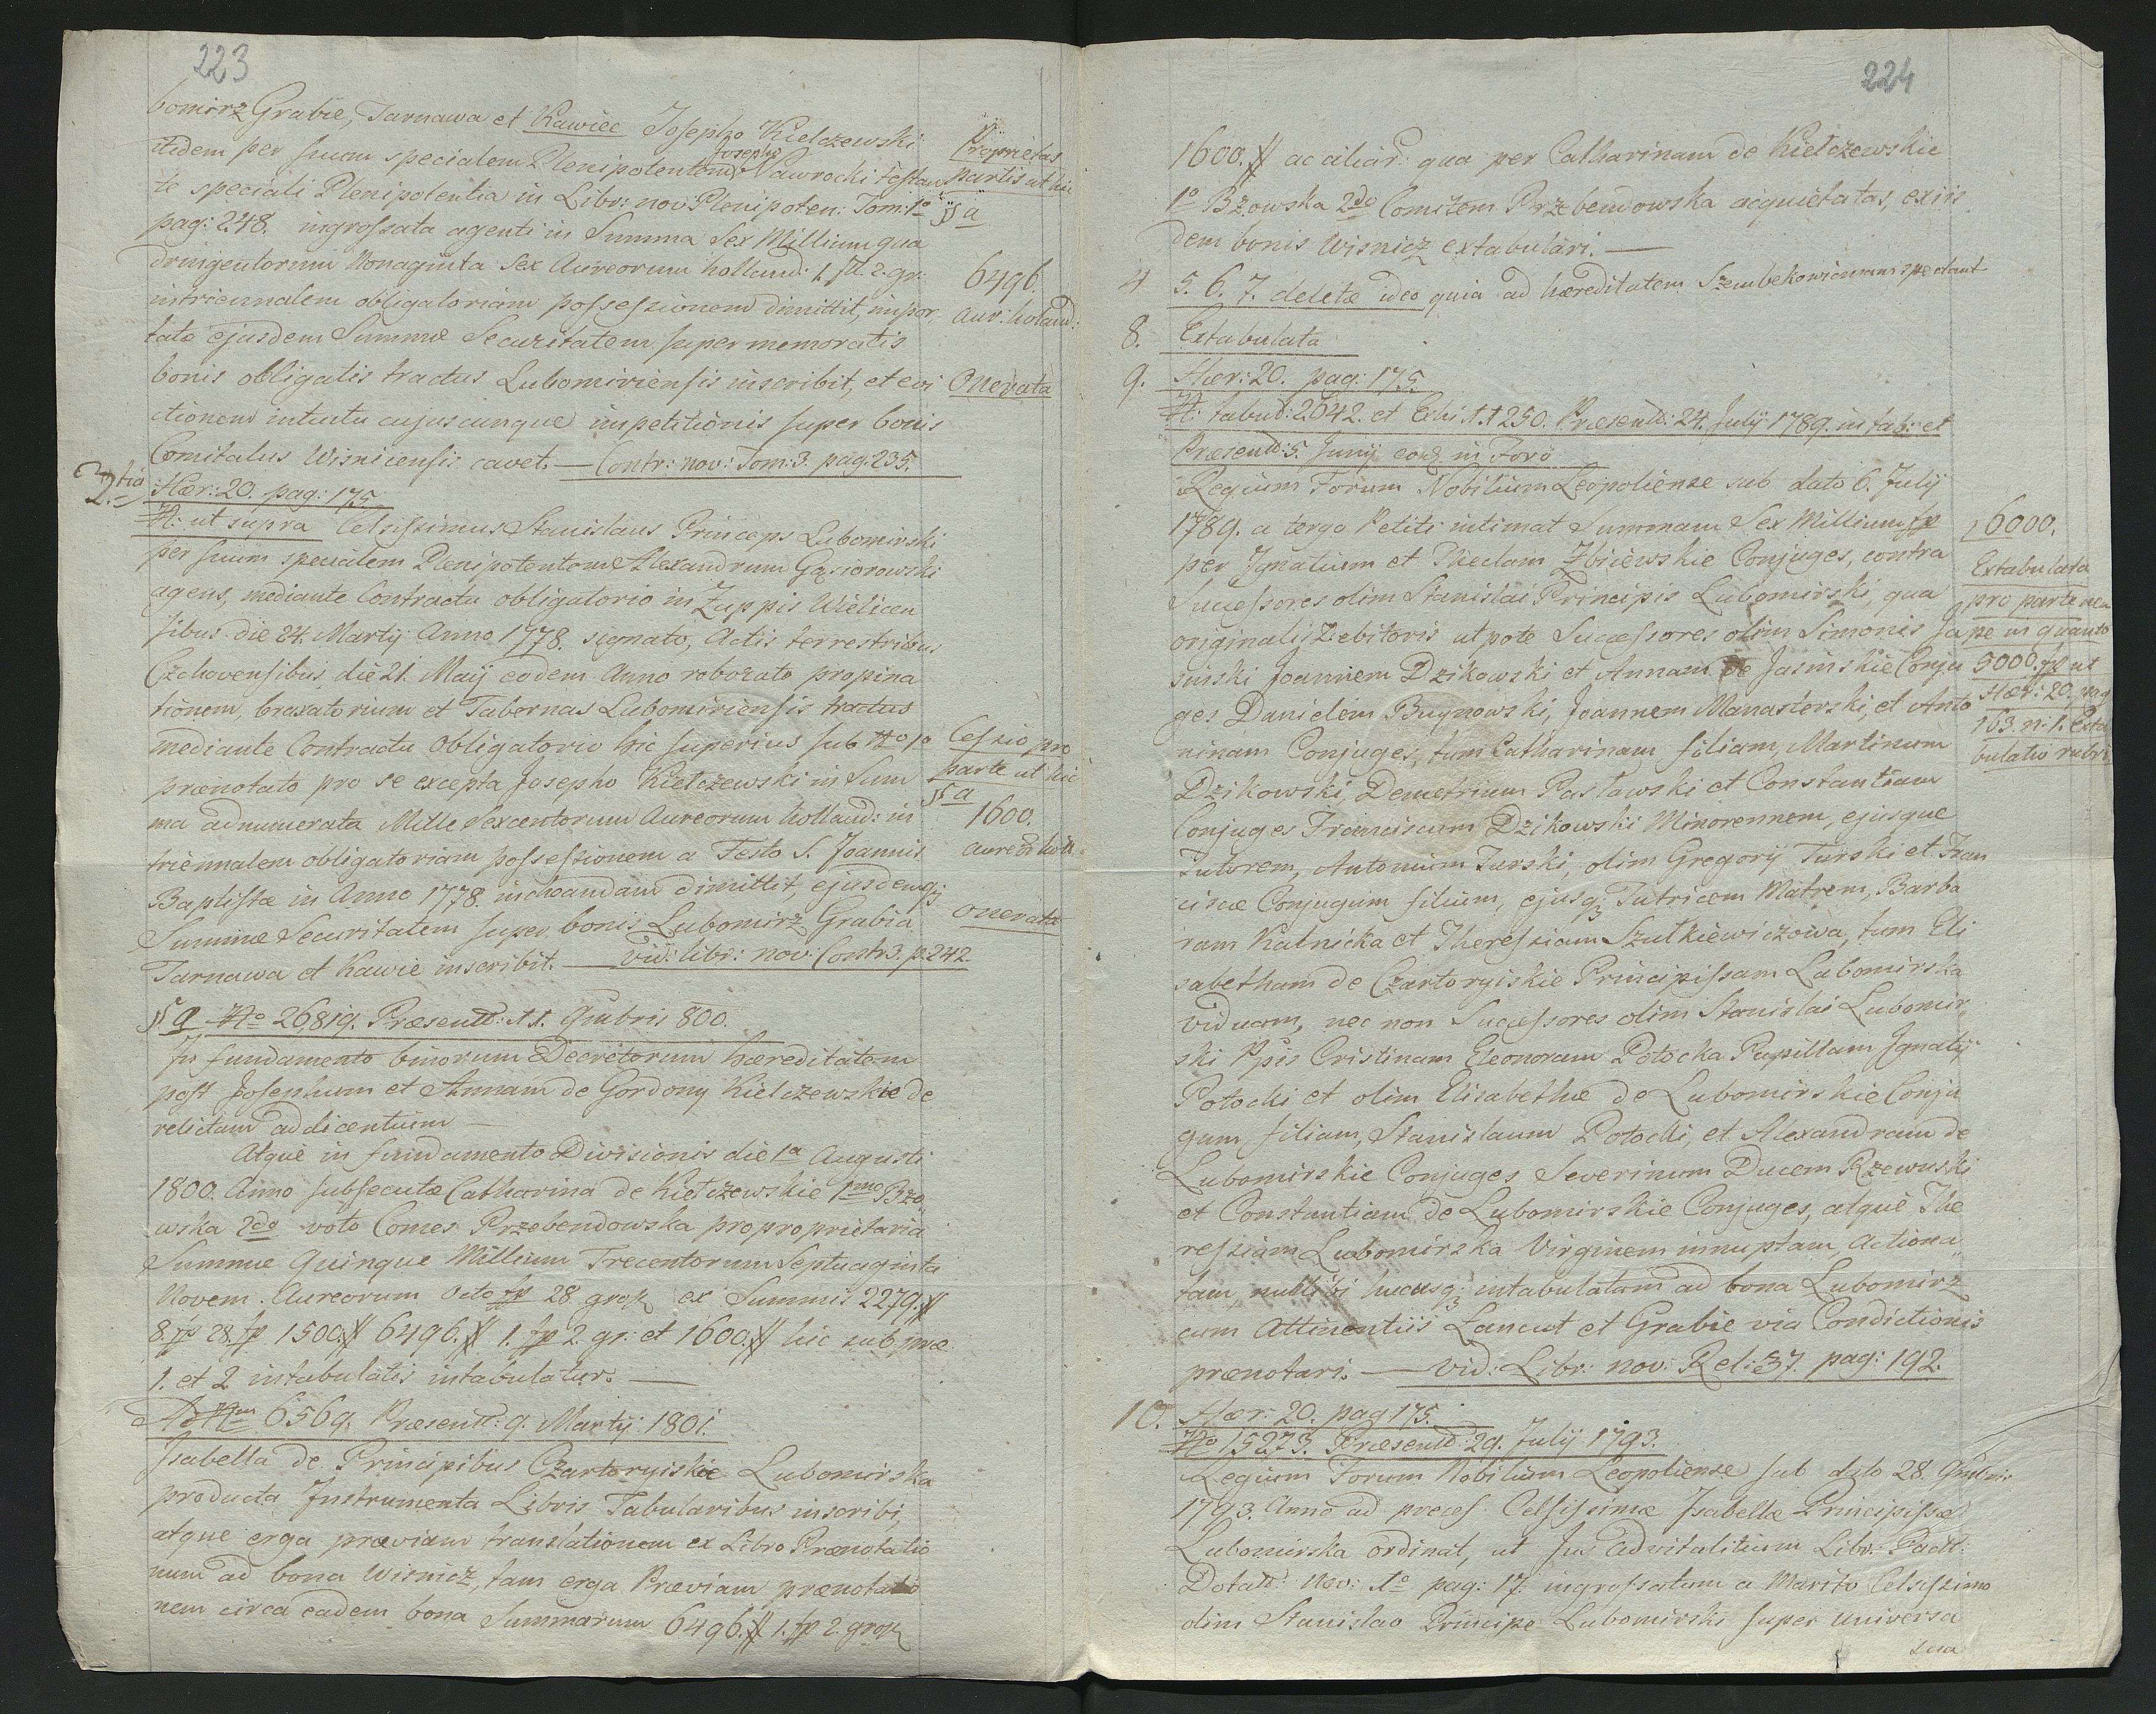 223
bomirz Grabie, Tarnawa et Kawiec Josepho Kielczewski
itidem per suum specialem Plenipotentem Josephum Nawrocki testan
te speciali Plenipotentia in Libr: nov: Plenipoten: Tom: 1o
pag: 248. ingrossata agenti in Summa Sex Millium qua
dringentorum Nonaginta Sex Aureorum holland: 1. fl. 2. gr:
intriennalem obligatoriam possessionem dimittit, impor,
tatæ ejusdem Summæ Securitatem super memoratis
bonis obligatis tractus Lubomiriensis inscribit, et evi
ctionem intuitu cujuscunque impetitionis super bonis
Comitatus Wisnicensis cavet. — Contr: nov: Tom: 3. pag: 235.
Proprietas
partis ut hic
§ a
6496.
Aur: holand:
Onerata
2. tia Hær: 20. pag: 175
N: ut supra Celsissimus Stanislaus Princeps Lubomirski
per suum specialem Plenipotentem Alexandrum Gąsiorowski
agens, mediante Contractu obligatorio in Zuppis Wielicen
sibus die 24. Martij Anno 1778. signato, Actis terrestribus
Czchovensibus, die 21. Maij eodem Anno roborato propina
tionem, braxatorium et Tabernas Lubomiriensis tractus
mediante Contractu Obligatorio hic superius sub No 1o
prænotato pro se excepta Josepho Kielczewski in Sum
ma adnumerata Mille Sexcentorum Aureorum holland: in
triennalem obligatoriam possessionem a Festo S. Joannis
Baptistæ in Anno 1778. inchoandam dimittit, ejusdemq;
Summæ Securitatem super bonis Lubomirz Grabia
Tarnawa et Kawie inscribit. — Vid: libr: nov: Contr 3. p. 242
Cessio pro
parte ut hic
§ a
1600.
aureor: holl:
onerata
§ a No 26819. Præsentt: 11. 9mbris 800.
In fundamento binorum Decretorum hæreditatem
post Josephum et Annam de Gordony Kielczewskie de
relictam addicentium —
Atque in fundamento Divisionis die 1a Augusti
1800. Anno subsecutæ Catharina de Kielczewskie 1mo Bżo
wska 2do voto Comes Przebendowska pro proprietaria
Summæ Quinque Millium Trecentorum Septuaginta
Novem. Aureorum Octo fp 28 gross ex Summis 2279. #
8. fp 28. fp 1500. # 6496. # 1. fp 2. gr: et 1600. # hic sub præ.
1. et 2 intabulatis intabulatur. —
Ad Num 6569. Præsentt: 9. Martij 1801.
Isabella de Principibus Czartoryiskie Lubomirska
producta Instrumenta Libris Tabularibus inscribi,
atque erga præviam translationem ex Libro Prænotatio
num ad bona Wisnicz, tam erga Præviam prænotatio
nem circa eadem bona Summarum 6496. # 1. fp 2. gross
224
1600. # ac aliar: qua per Catharinam de Kielczewskie
1o Bżowska 2do Comitem Przebendowska acquietatas, ex iis
dem bonis Wisnicz extabulari. —
4 5. 6. 7. deletæ ideo quia ad hæreditatem Szembekowianam spectant
8. Extabulata
9. Hær: 20. pag: 175.
N: tabul: 2642. et Exhi. 11250. Præsentt: 24. Julij 1789. in tab: et
Præsentt: 5. Junij eod. in Foro
Regium Forum Nobilium Leopoliense sub dato 6. Julij
1789. a tergo Petiti intimat Summam Sex Millium fp
per Ignatium et Theclam Zbiiewskie Conjuges, contra
Successores olim Stanislai Principis Lubomirski, qua
originalis Debitoris utpote Successores olim Simonis Ja
sinski Joannem Dzikowski et Annam de Jasinskie Conju
ges Danielem Buynowski, Joannem Manasterski, et Anto
ninam Conjuges, tum Catharinam filiam, Martinum
Dzikowski, Demetrium Pasławski et Constantiam
Conjuges Franciscum Dzikowski Minorennem, ejusque
Tutorem, Antonium Turski, olim Gregorij Turski et Fran
ciscæ Conjugum filium, ejusq; Tutricem Matrem, Barba
ram Kalnicka et Theressiam Szutkiewiczowa, tum Eli
sabetham de Czartoryiskie Principissam Lubomirska
Viduam, nec non Successores olim Stanislai Lubomir,
ski Ppis Cristinam Eleonoram Potocka Pupillam Ignatij
Potocki et olim Elisabethæ de Lubomirskie Conju
gum, filiam, Stanislaum Potocki, et Alexandram de
Lubomirskie Conjuges Severinum Ducem Rzewuski
et Constantiam de Lubomirskie Conjuges, atque The
ressiam Lubomirska Virginem innuptam, actiona
tam nullibi hucusq; intabulatam ad bona Lubomirz
cum Attinentiis Łancut et Grabie via Condictionis
prænotari. — vid: Libr: nov: Rel: 37. pag: 192.
6000.
Extabulata
pro parte nem
pe in quanto
5000 fp ut
Hær: 20. pag
163. n: 1. Exta
bulatio rubr:
10. Hær: 20. pag 175.
No 15273. Præsentt: 29. Julij 1793.
Regium Forum Nobilium Leopoliense sub dato 28.
1793. Anno ad preces Celsissimæ Isabellæ Principissæ
Lubomirska ordinat, ut Jus Advitalitium Libr: Pact:
Dotal: Nov: 1o pag: 17. ingrossatum a Marito Celsissimo
olim Stanislao Principe Lubomirski super universa
sua